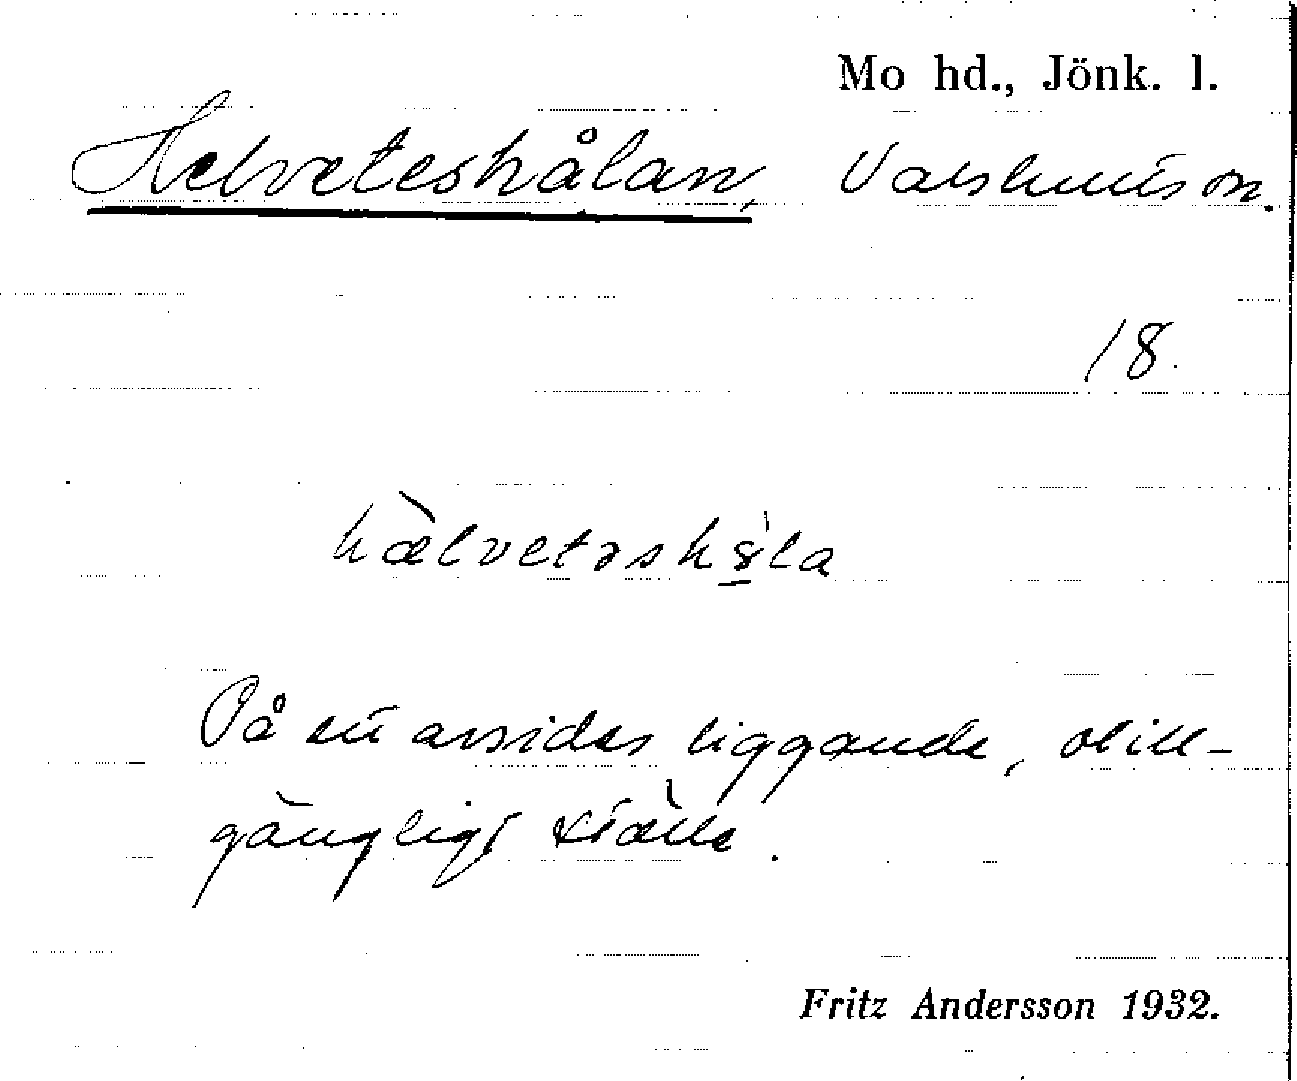 Mo hd., Jönk. l.
Helveteshålan, Valshult sn.
18.
hàlvetəshɤ̀la
På ett avsides liggande, otill-
gängligt ställe.
Fritz Andersson 1932.